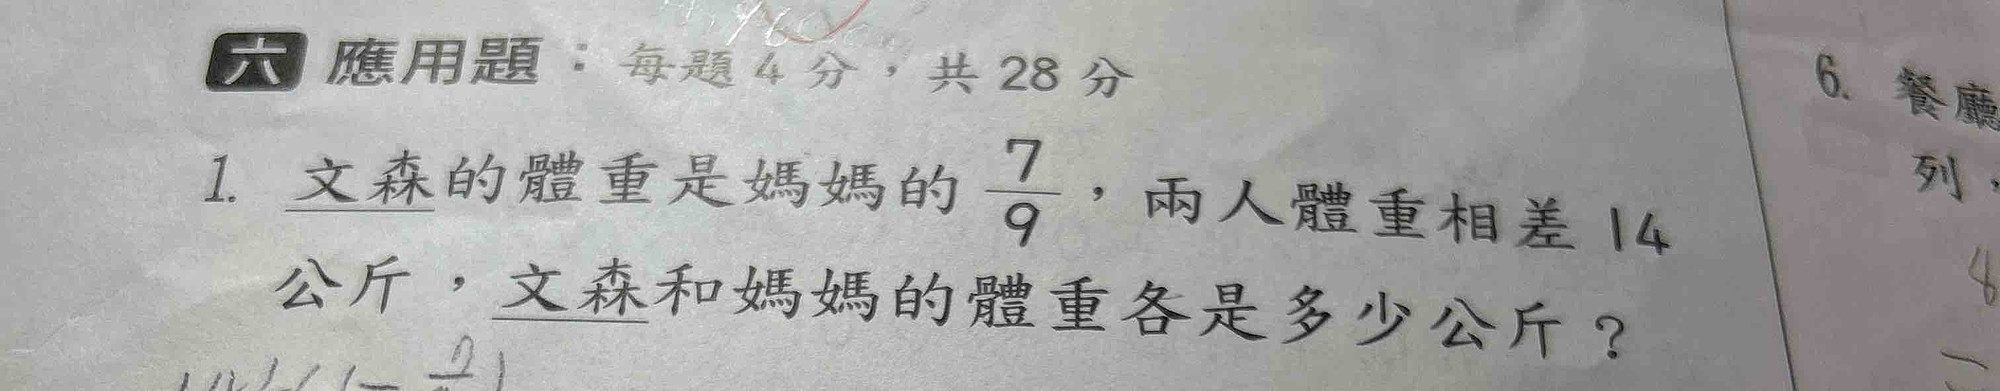 六 應用題：每題 4 分，共 28 分
1. 文森的體重是媽媽的 7/9，兩人體重相差 14
公斤，文森和媽媽的體重各是多少公斤？
6. 餐廳
列，